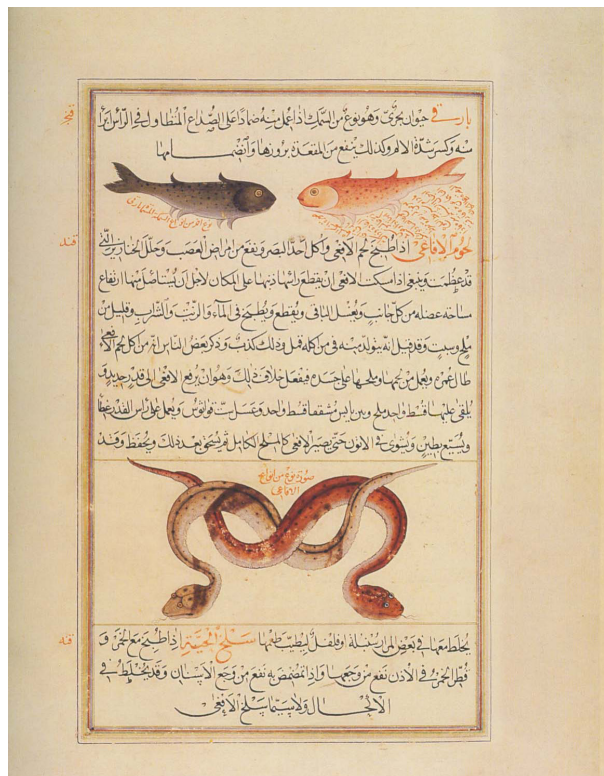 بارسقي حيوان بحري وهو نوع من السمك اذا عمل منه ضمادًا على الصداع المتطاول في الرأس برأ
منه وكسر شدة الالم وكذلك ينفع من المقعدة بروزها وانضمامها
لحوم الافاعي اذا طبخ لحم الافعى واكل احدّ البصر ونفع من امراض العصب وحلل الخنازير التي
قد عظمت وينبغي اذا مسكت الافعى ان يقطع راسها وذنبها على المكان لاجل ان يستاصل منها ارتفاع
مساحته عضله من كل جانب ويغسل الباقي ويقطع ويطبخ في الماء والزيت والشراب وقليل من
ملح وشبت وقد قيل انه يتولد منه في من اكله قمل وذلك كذب وذكر بعض الناس انه من اكل لحم الافعى
طال عمره ويعمل من لحمها وملحها على حدة فيفعل خلاف ذلك وهو ان يرفع الافعى الى قدر جديدة و
يلقى عليها قسط واحد ملح وتين يابس مشققا قسط واحد وعسل ستة قواثوس ويعمل على راس القدر غطا
ويشيع بطين ويشوى في الاتون حتى يصير الافعى كالملح الكامل ثم يسحق بعد ذلك ويحفظ وقد
صورة نوع من انواع
الافاعي
يخلط معها في بعض المرار سنبلة او فلفل ليطيب طعمها سلخ الحية اذا طبخ مع الخمر و
قطر الخمر في الاذن نفع من وجعها واذا تمضمض به نفع من وجع الاسنان وقد يخلط في
الاكحال ولا سيما سلخ الافعى